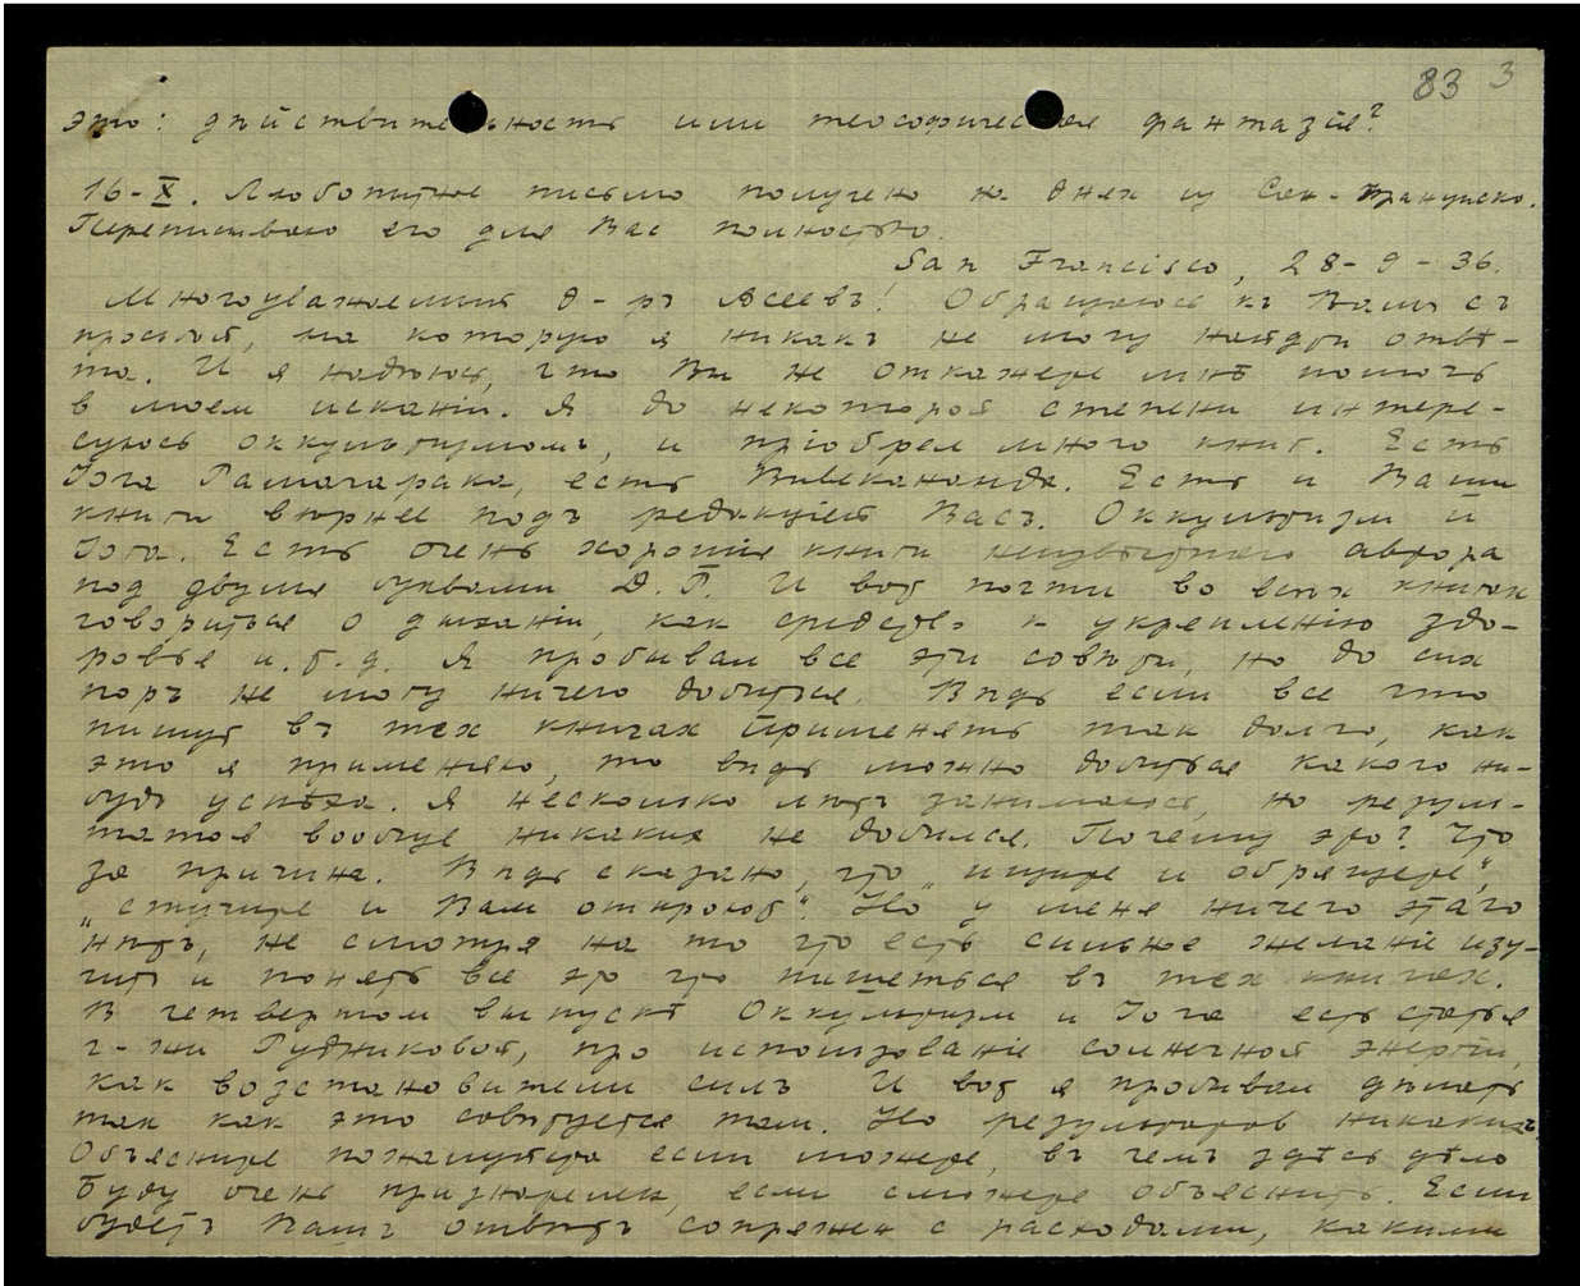 83 3
это: дѣйствительность или теософическая фантазія?
16-X. Любопытное письмо получено на днях из Сан-Франциско.
Переписываю его для Вас полностью.
San Francisco, 28-9-36.
Многоуважаемый д-ръ Асеевъ! Обращаюсь къ Вамъ съ
просьбой, на которую я никакъ не могу найти отвѣ-
та. И я надѣюсь, что Вы не откажете мнѣ помочь
в моем исканіи. Я до некоторой степени интере-
суюсь оккультизмомъ, и пріобрел много книг. Есть
Іога Рамачарака, есть Вивекананда. Есть и Ваши
книги вѣрнее подъ редакціей Васъ. Оккультизм и
Іога. Есть очень хорошія книги неизвѣстнаго автора
под двумя буквами Д.Г. И вот почти во всѣх книгах
говориться о дыханіи, как средство к укрепленію здо-
ровья и.т.д. Я пробывал все эти совѣты, но до сих
поръ не могу ничего добиться. Вѣдь если все что
пишут въ тех книгах применять так долго, как
это я применяю, то вѣдь можно добиться какого ни-
будь успѣха. Я несколько лѣтъ занимаюсь, но резуль-
татов вообще никаких не добился. Почему это? Что
за причина. Вѣдь сказано, что „ищите и обрящете",
„стучите и Вам откроют". Но у меня ничего этаго
нѣтъ, не смотря на то что есть сильное желаніе изу-
чить и понять все это что пишеться въ тех книгах.
В четвертом выпускѣ Оккультизм и Іога есть статья
г-жи Рудниковой, про использованіе солнечной энергіи,
как возстановители силъ И вот я пробывал дѣлать
так как это совѣтуется там. Но результатов никакихъ.
Объясните пожалуйста если можете, въ чемъ здѣсь дѣло
Буду очень признателен, если сможете объяснить. Если
будетъ Вашъ отвѣтъ сопряжен с расходами, какими